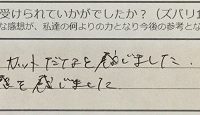 受けられていかがでしたか？（ズバリ
な感想が、私達の何よりの力となり今後の参考とな
カットだなと感じました。
を感じました